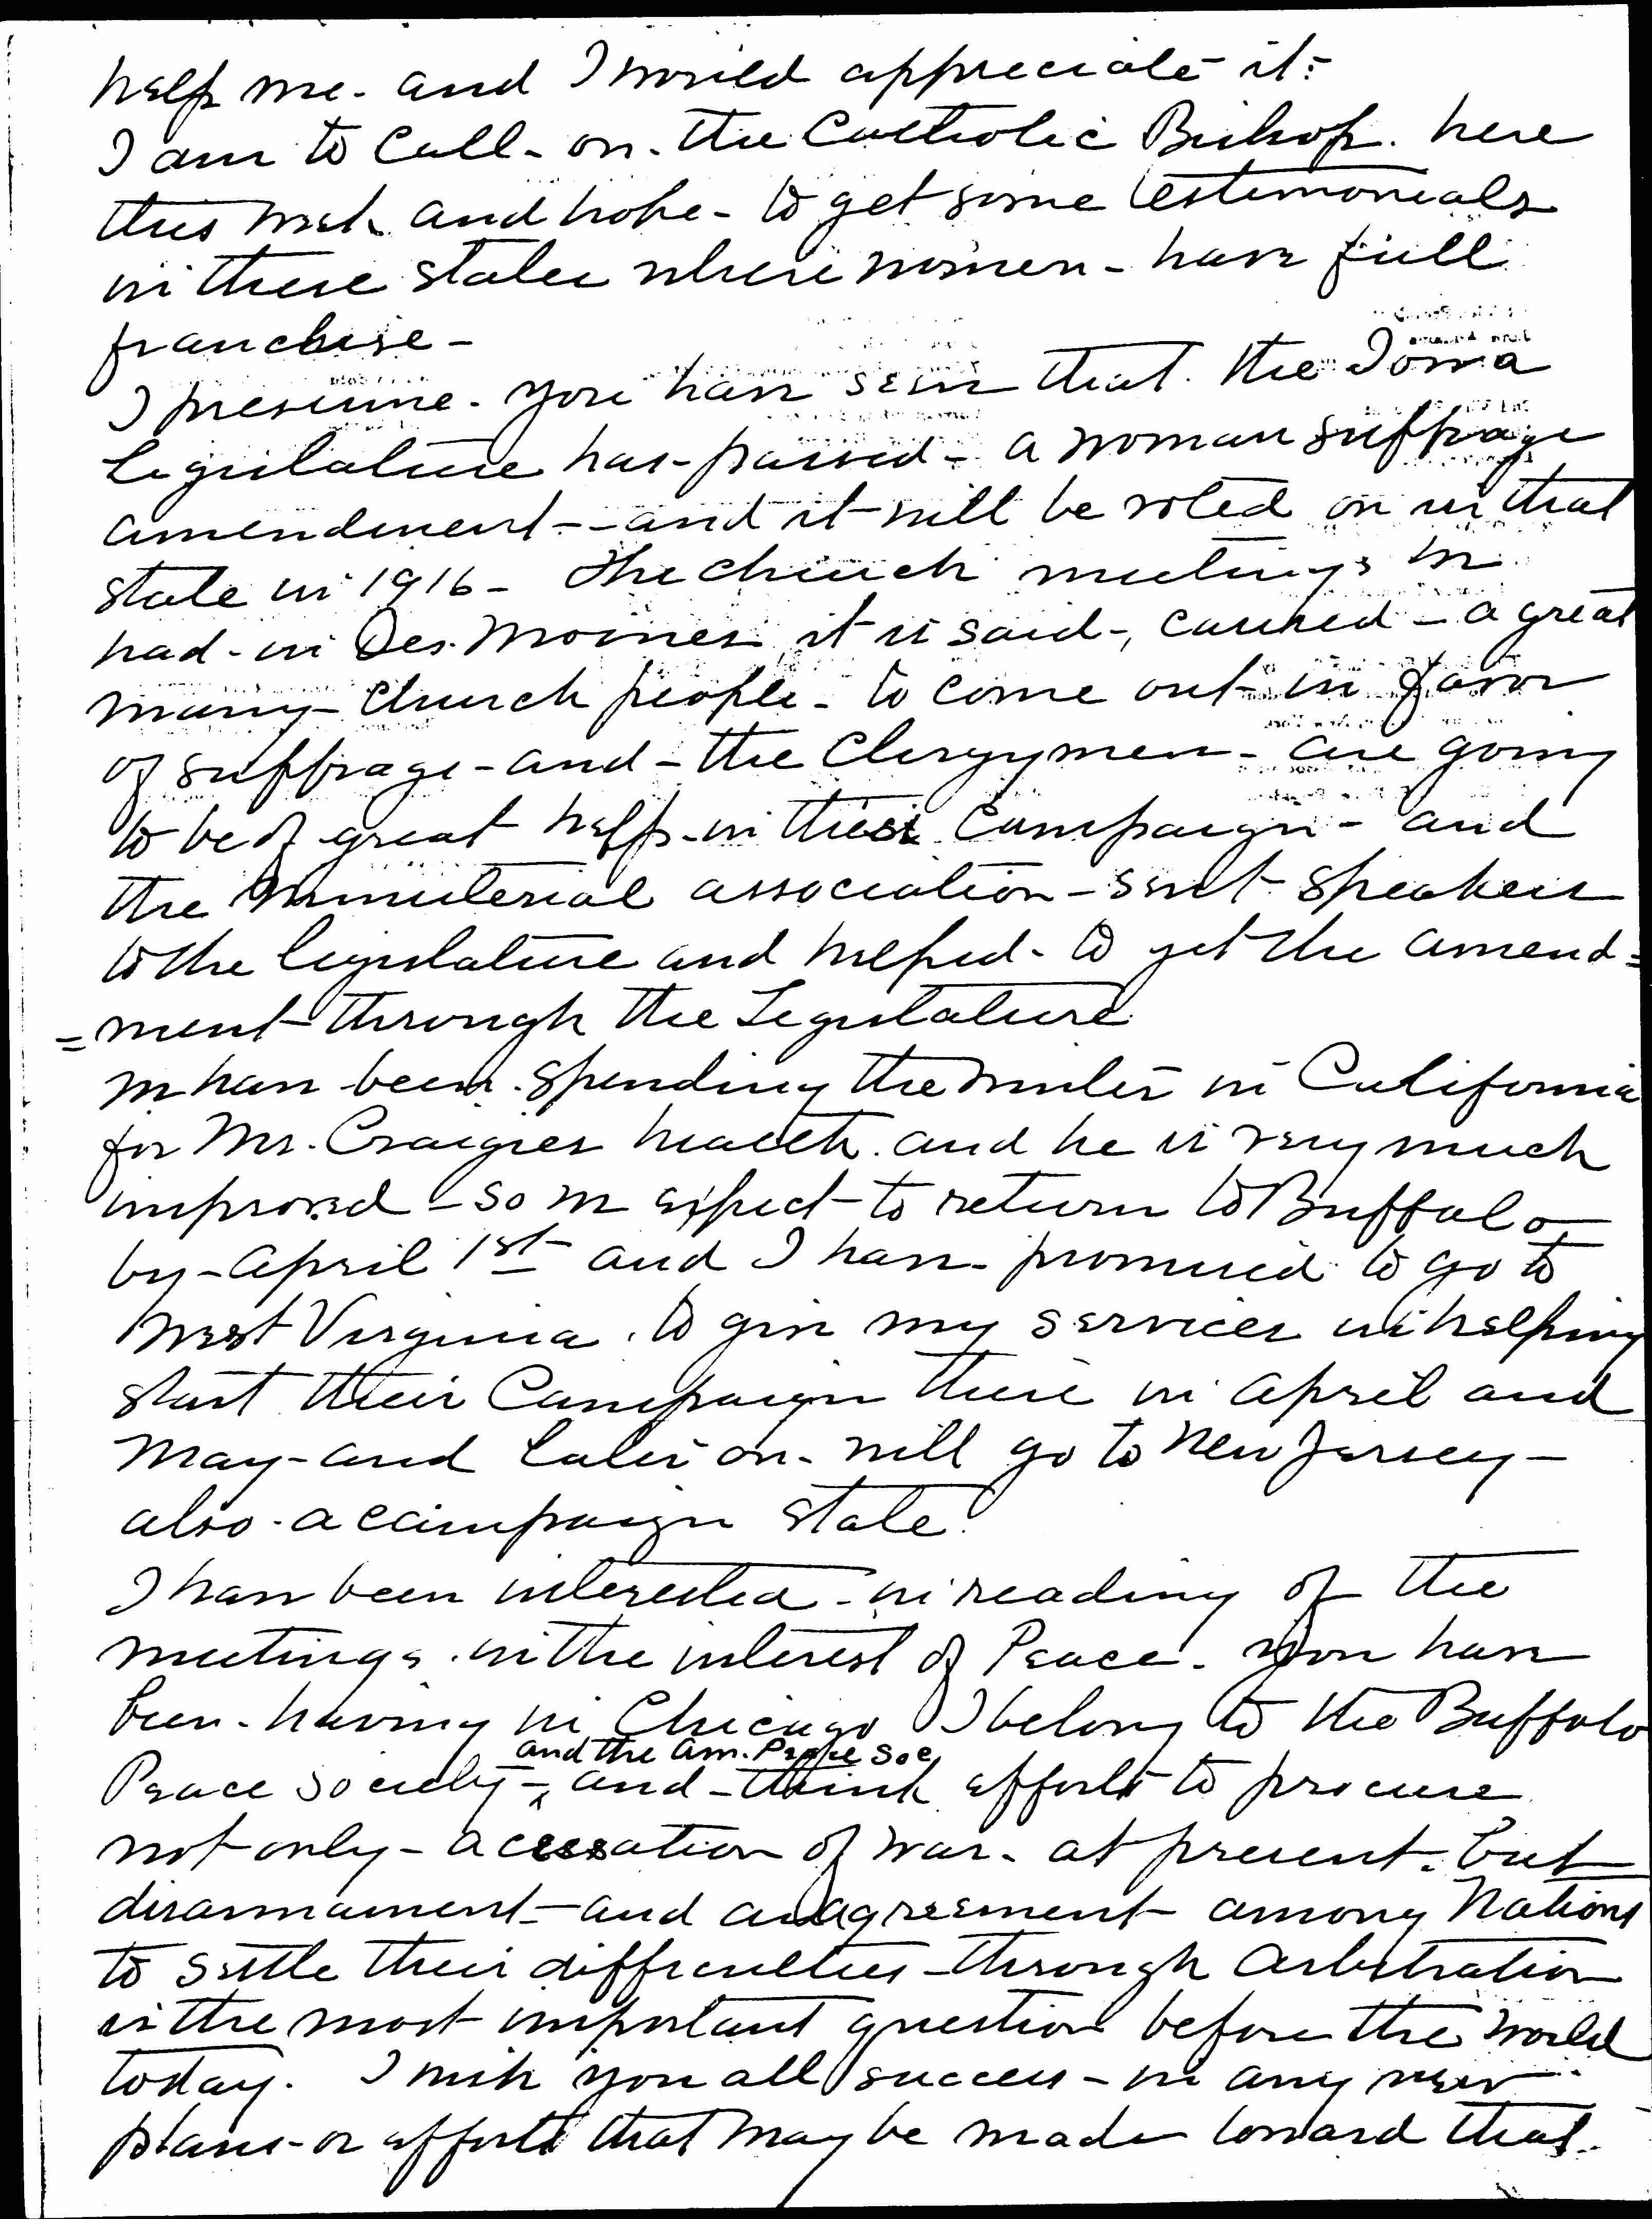 help me - and I would appreciate it -
I am to call - on - the Catholic Bishop. here
this week and hope - to get some testimonials
in these states where women - have full
franchise -
I presume - you have seen that the Iowa
Legislature has - passed - a woman suffrage
amendment - - and it will be voted on in that
state in 1916 - The church meetings we
had - in Des Moines it is said -, caused - a great
many - church people - to come out - in favor
of suffrage - and - the clergymen - are going
to be of great help - in their campaign - and
the Ministerial association - sent speakers
to the legislature and helped - to get the amend=
=ment through the Legislature
We have been spending the winter in California
for Mr. Craigies health. and he is very much
improved - so we expect - to return to Buffalo -
by - April 1st and I have - promised to go to
West Virginia. to give my services in helping
start their Campaign there in April and
May - and later on - will go to New Jersey -
also - a campaign state.
I have been interested - in reading of the
meetings. in the interest of Peace - you have
been - having in Chicago I belong to the Buffalo
and the Am. Peace Soc
Peace Society -, and - think efforts to procure
not only - a cessation of war - at present. but
disarmament - and an agreement among Nations
to settle their difficulties - through Arbitration
is the most important question before the world
today. I wish you all success - in any new
plans - or efforts that may be made toward that.